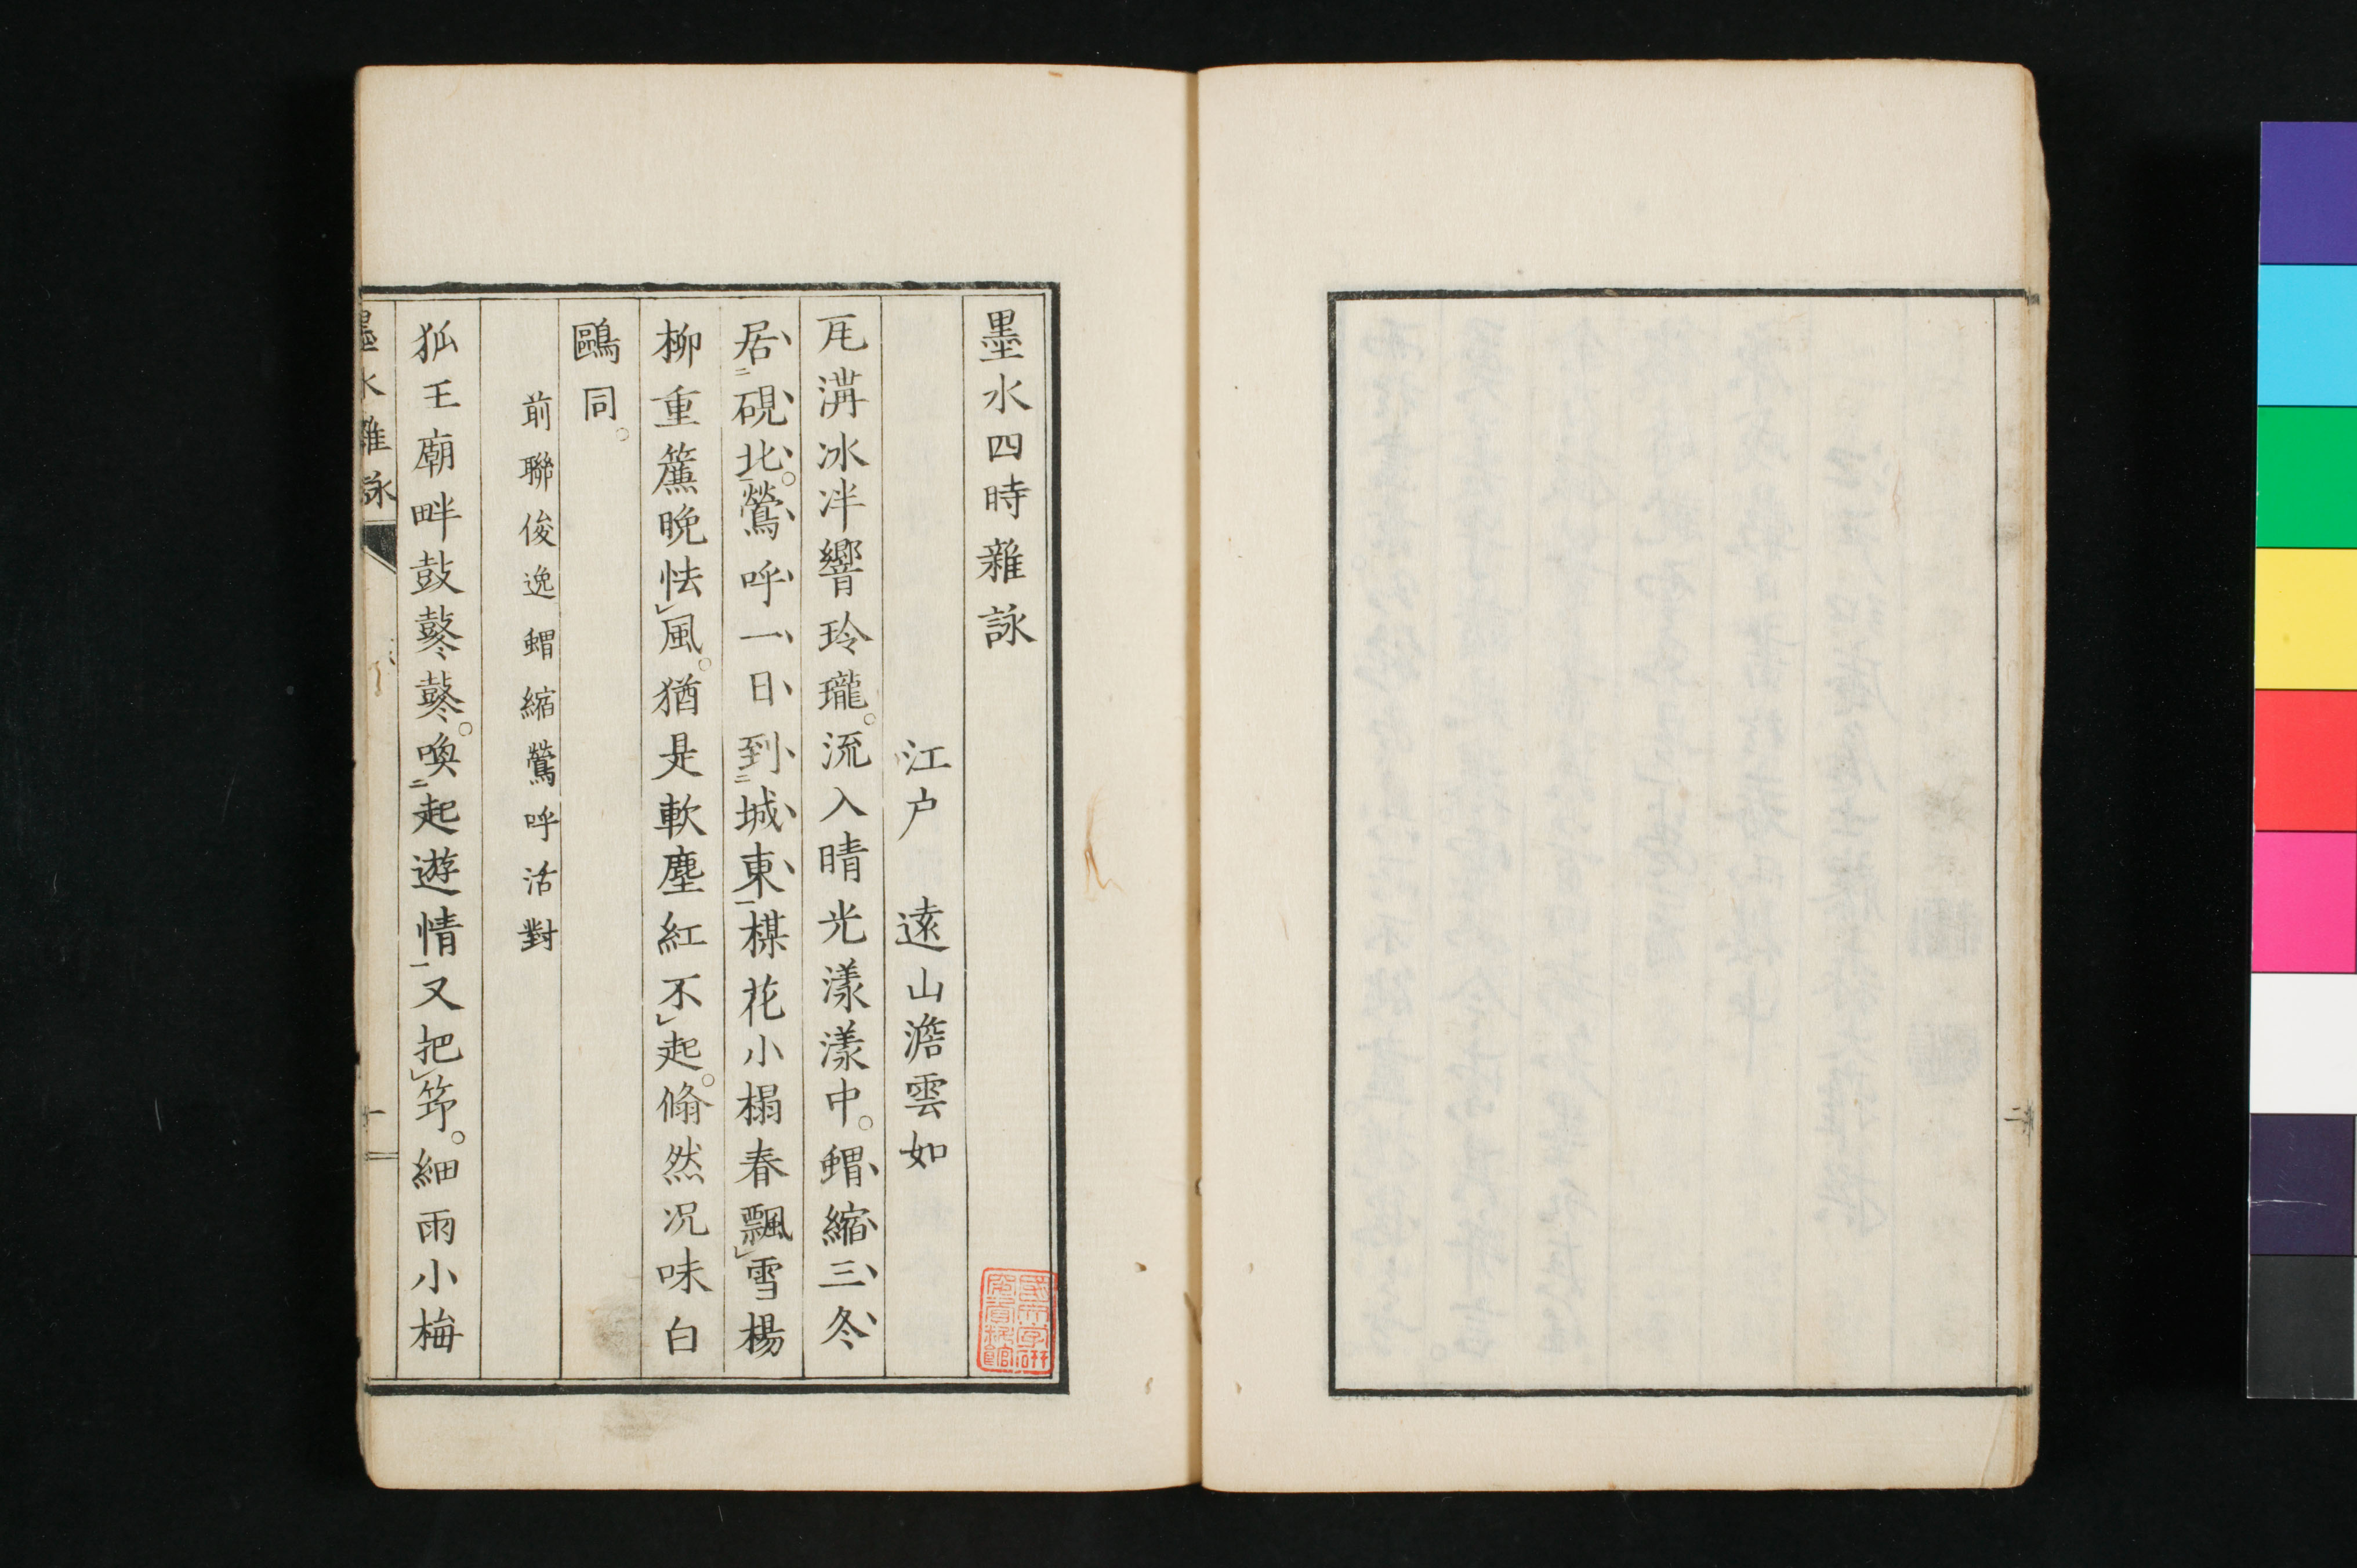 墨水四時雜詠
江户 遠山澹雲如
瓦溝冰泮響玲瓏。流入晴光漾漾中。蝟縮三冬
居二硯北一。鶯呼一日到二城東一楳花小榻春飄㆑雪楊
柳重簾晩怯㆑風。猶是軟塵紅不㆑起。翛然况味白
鷗同。
前聯俊逸蝟縮鶯呼活對
狐王廟畔鼓鼕鼕。喚二起遊情一又把㆑筇。細雨小梅
墨水雜詠